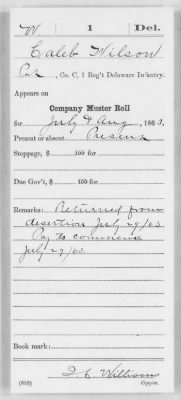 W 1 Del.
Caleb Wilson
Pvt, Co. C, 1 Reg't Delaware Infantry.
Appears on
Company Muster Roll
for July & Aug, 1863.
Present or absent Present
Stoppage, $ 100 for
Due Gov't, $ 100 for
Remarks: Returned from
desertion July 29/63
Pay to commence
July 29/63
Book mark:
Williams
(858) Copyist.